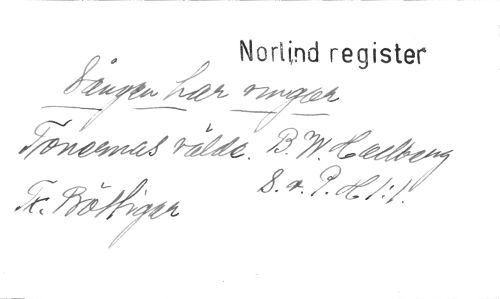 Norlind register
Sången har vingar
Tonernas välde. B. W. Hallberg
Tx. Böttiger
S. v. P. H 1:1.